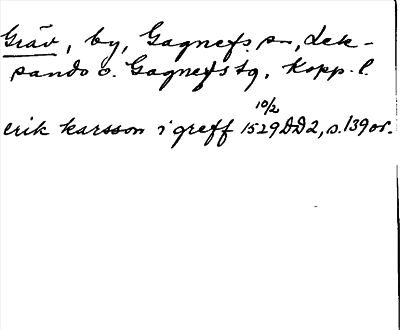 Gräv, by, Gagnefs sn, Lek-
sands o. Gagnefs tg, Kopp. l.
10/2
erik karsson i greff 1529 DD2, s. 139 or.